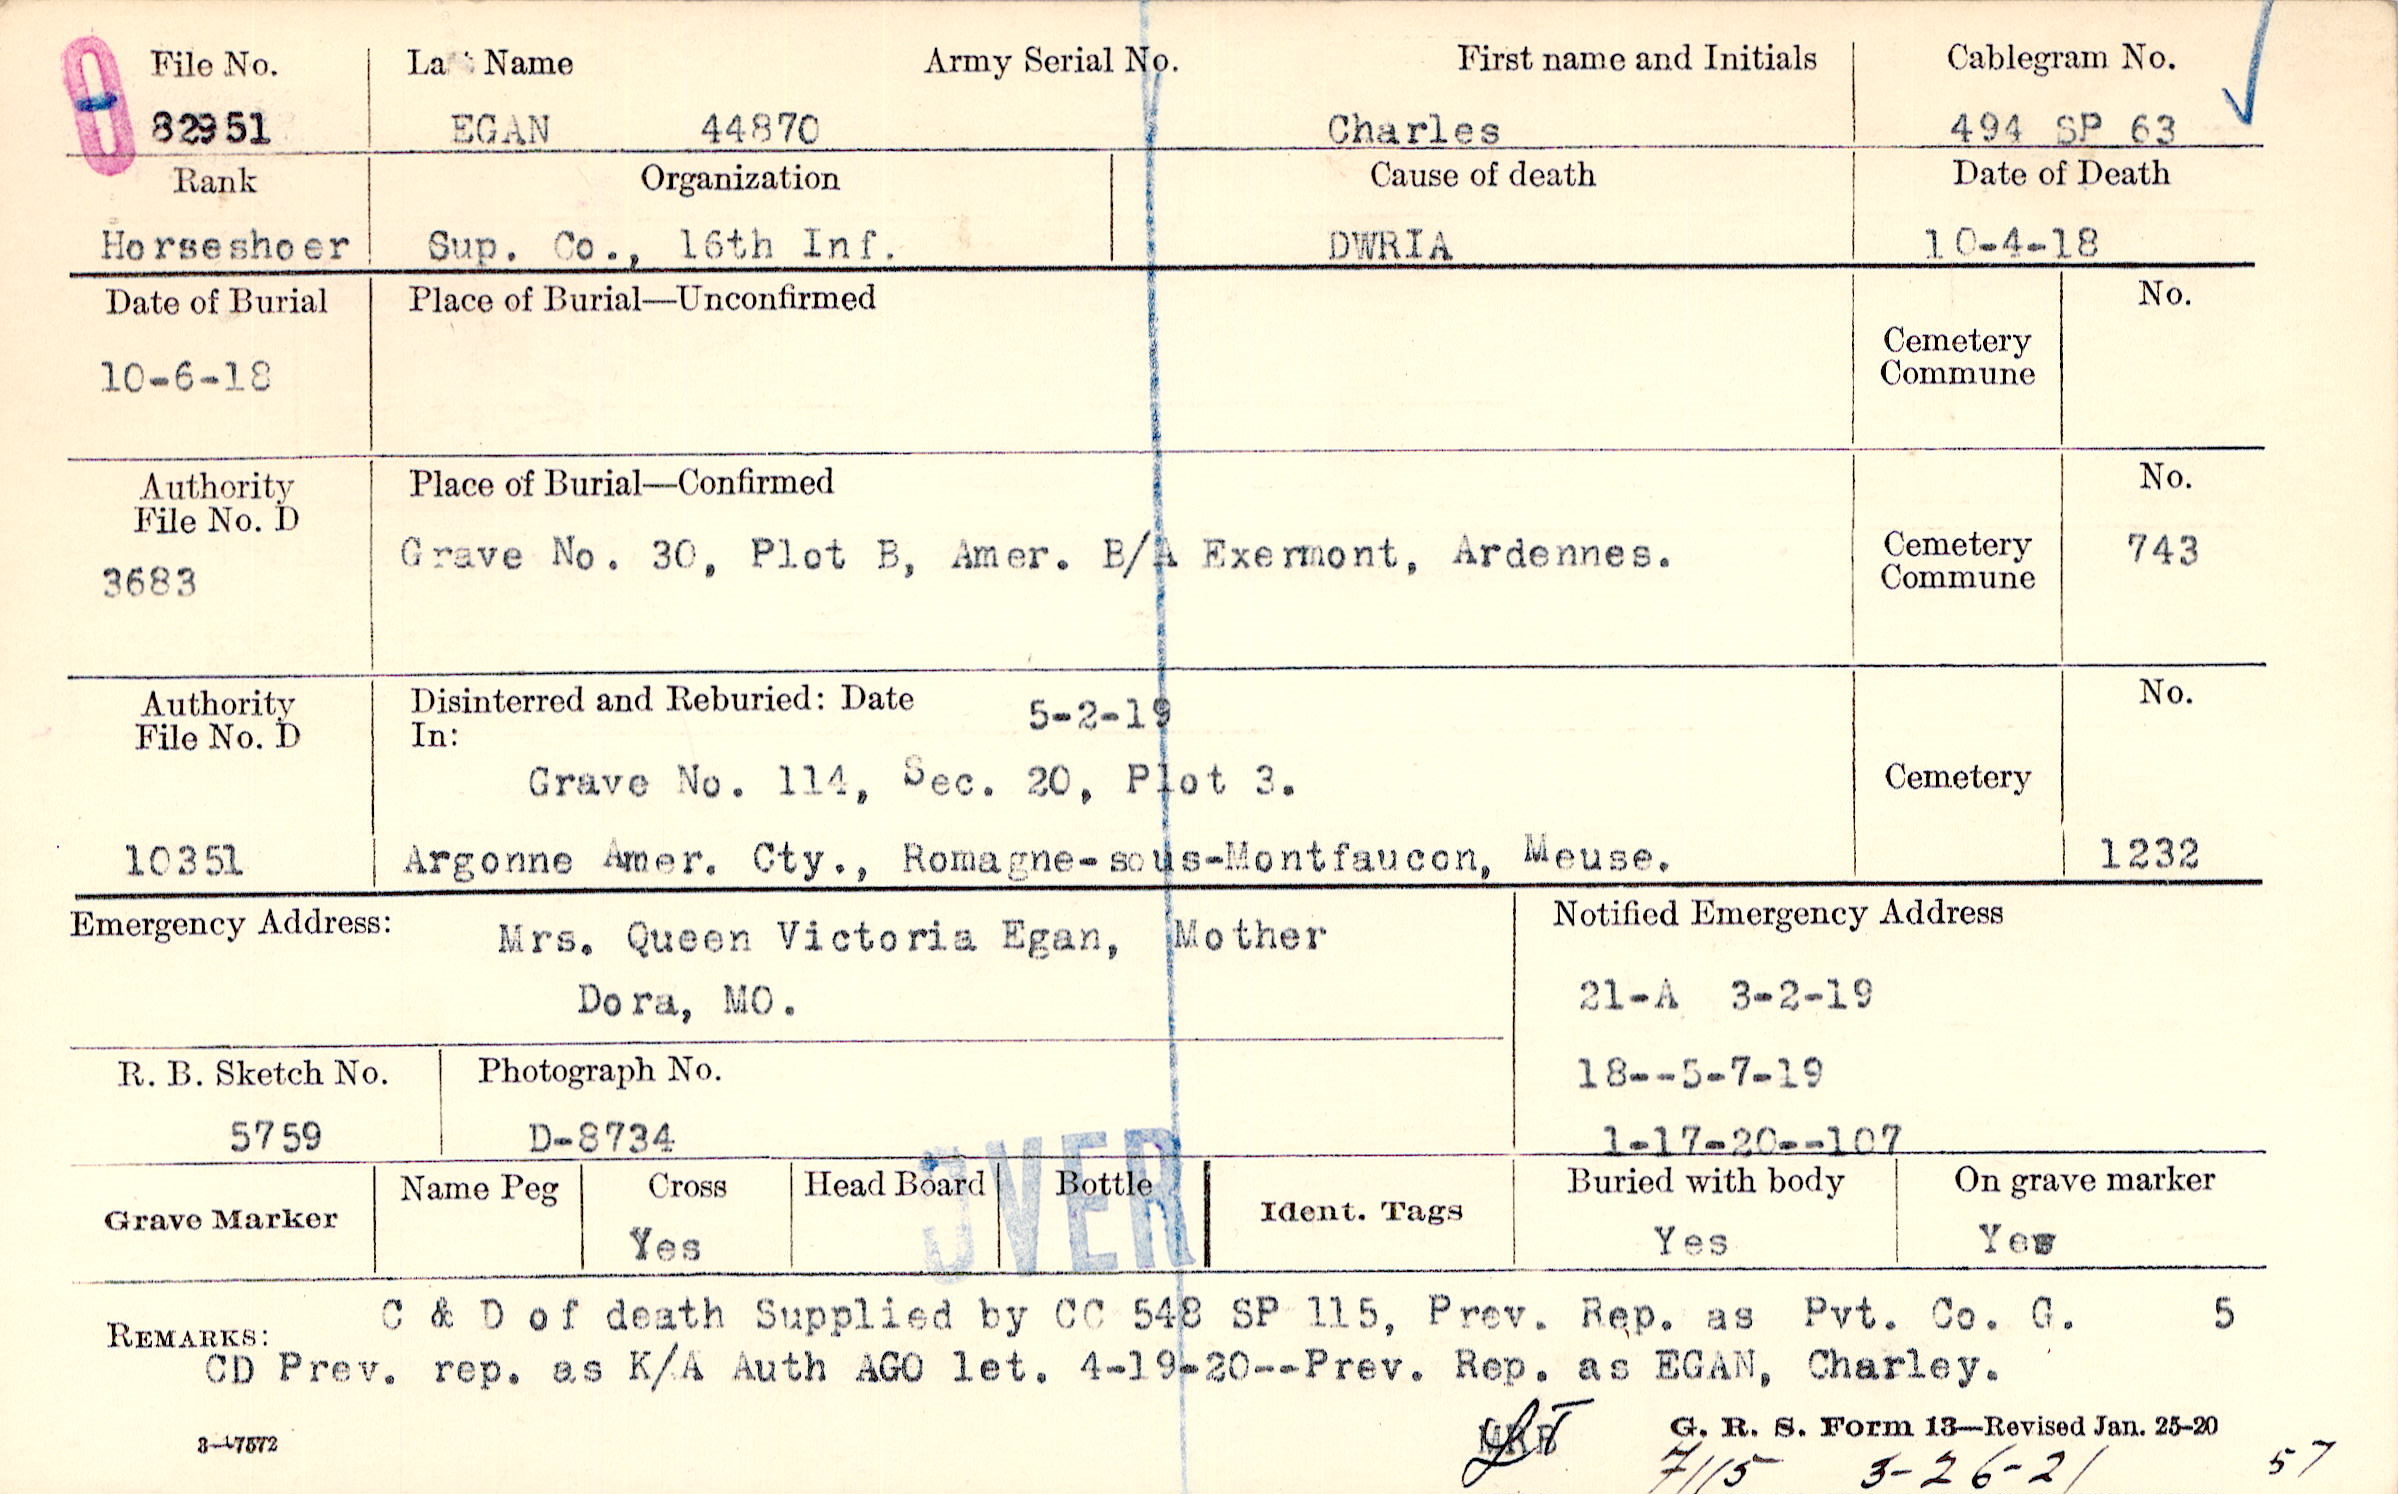 File No. La Name Army Serial No. First name and Initials Cablegram No.
82951 EGAN 44870 Charles 494 SP 63
Rank Organization Cause of death Date of Death
Horseshoer Sup. Co., 16th Inf. DWRIA 10-4-18
Date of Burial Place of Burial—Unconfirmed No.
Cemetery
Commune
10-6-18
Authority Place of Burial—Confirmed No.
File No. D
Grave No. 30, Plot B, Amer. B/A Exermont, Ardennes. Cemetery 743
3683 Commune
Authority Disinterred and Reburied: Date 5-2-19 No.
File No. D In:
Grave No. 114, Sec. 20, Plot 3. Cemetery
10351 Argonne Amer. Cty., Romagne-sous-Montfaucon, Meuse. 1232
Emergency Address: Mrs. Queen Victoria Egan, Mother Notified Emergency Address
Dora, MO. 21-A 3-2-19
R. B. Sketch No. Photograph No. 18--5-7-19
5759 D-8734 1-17-20--107
OVER
Grave Marker Name Peg Cross Head Board Bottle Ident. Tags Buried with body On grave marker
Yes Yes Yes
REMARKS: C & D of death Supplied by CC 548 SP 115, Prev. Rep. as Pvt. Co. G. 5
CD Prev. rep. as K/A Auth AGO let. 4-19-20--Prev. Rep. as EGAN, Charley.
3—7572 G. R. S. Form 13—Revised Jan. 25-20
7/15 3-26-21 57